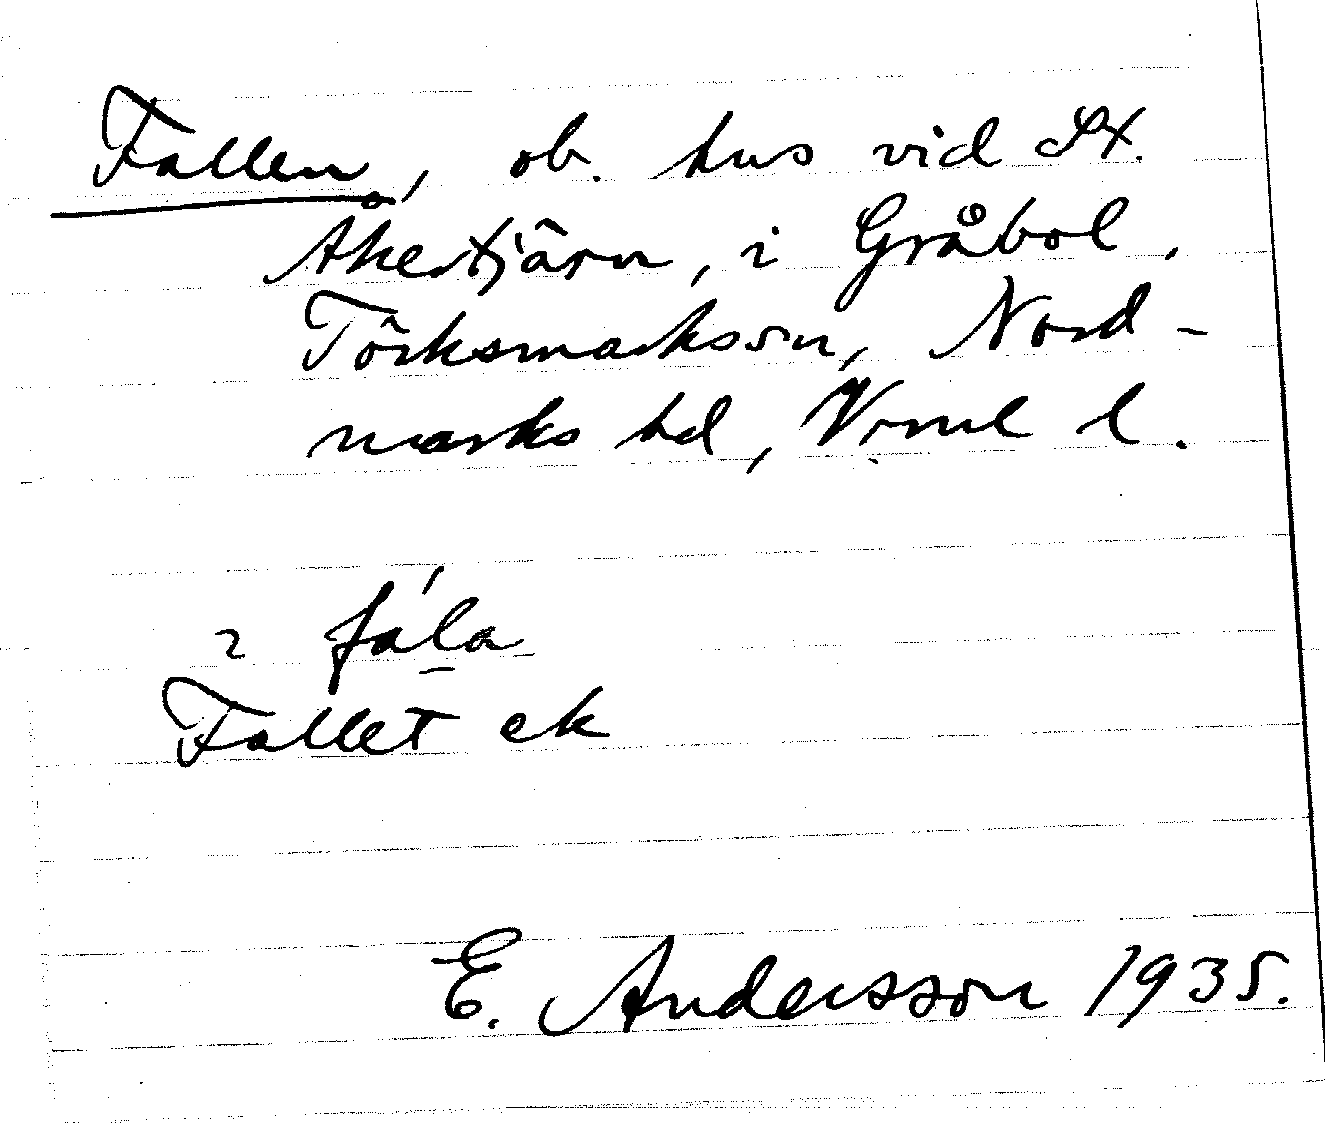 Fallen, ob. hus vid St.
Åkertjärn, i Gråbol,
Törksmarkssn, Nord-
marks hd, Vrml l.
i fa̍l̠a
Fallet ek
E. Andersson 1935.